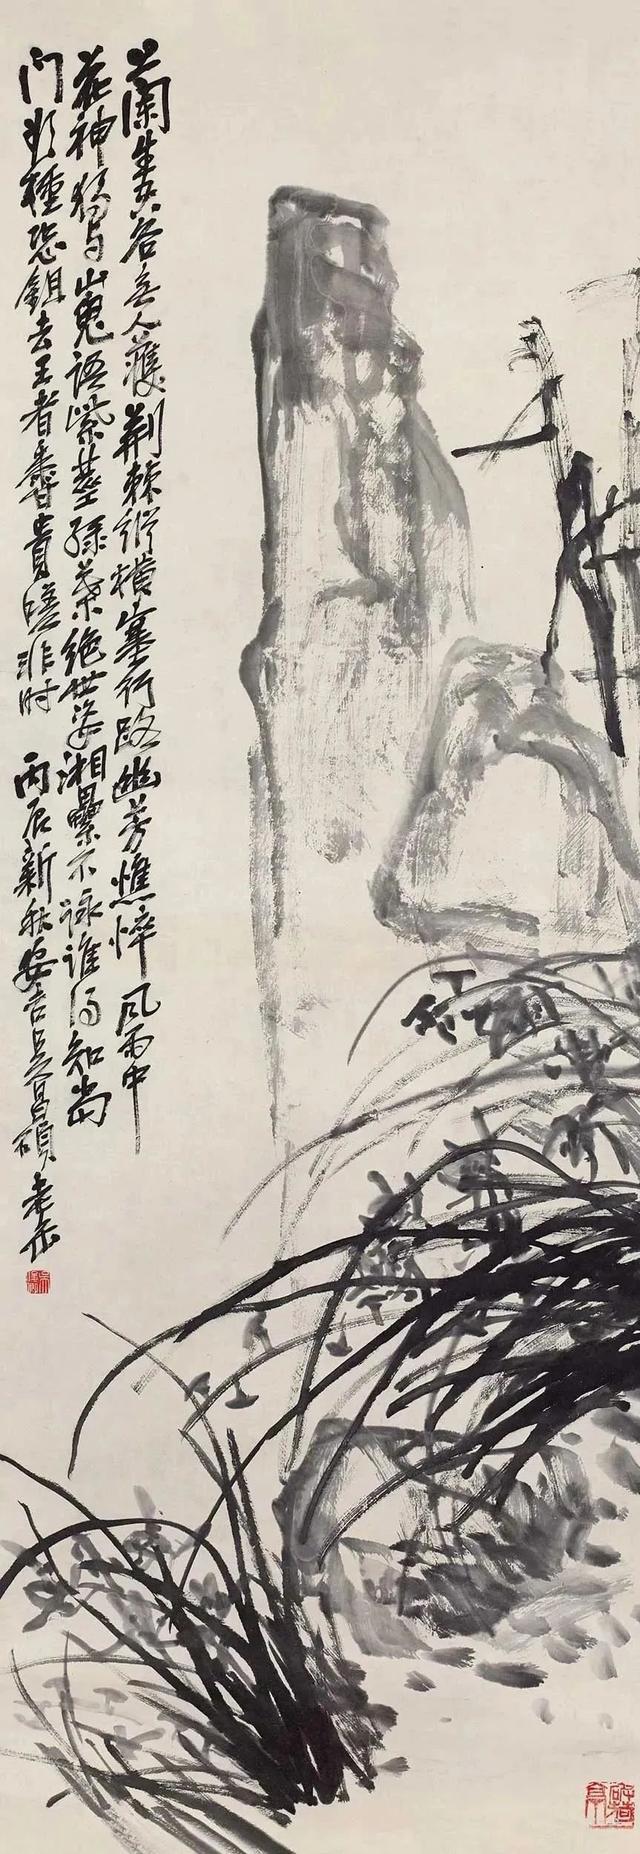 蘭生空谷無人護荆棘縱横塞行路幽芳憔悴風雨中
花神獨与山鬼語紫莖綠葉絕世姿湘纍不詠誰得知當
門欲種恐鉏去王者香貴嗟非時 丙辰新秋安吉吳昌碩老缶